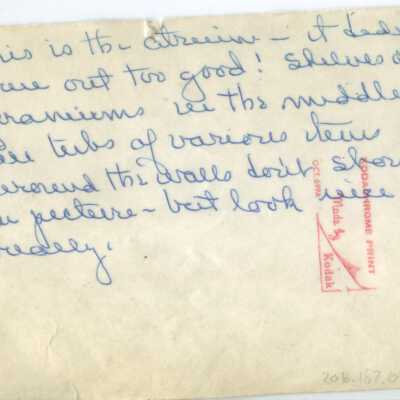 his is the atrium – it did
me out too good! shelves o
raniums in the middle
tubs of various items
around the walls don't sho
picture – but look nice
really!
KODACHROME PRINT
Made by
Kodak
2016.187.0